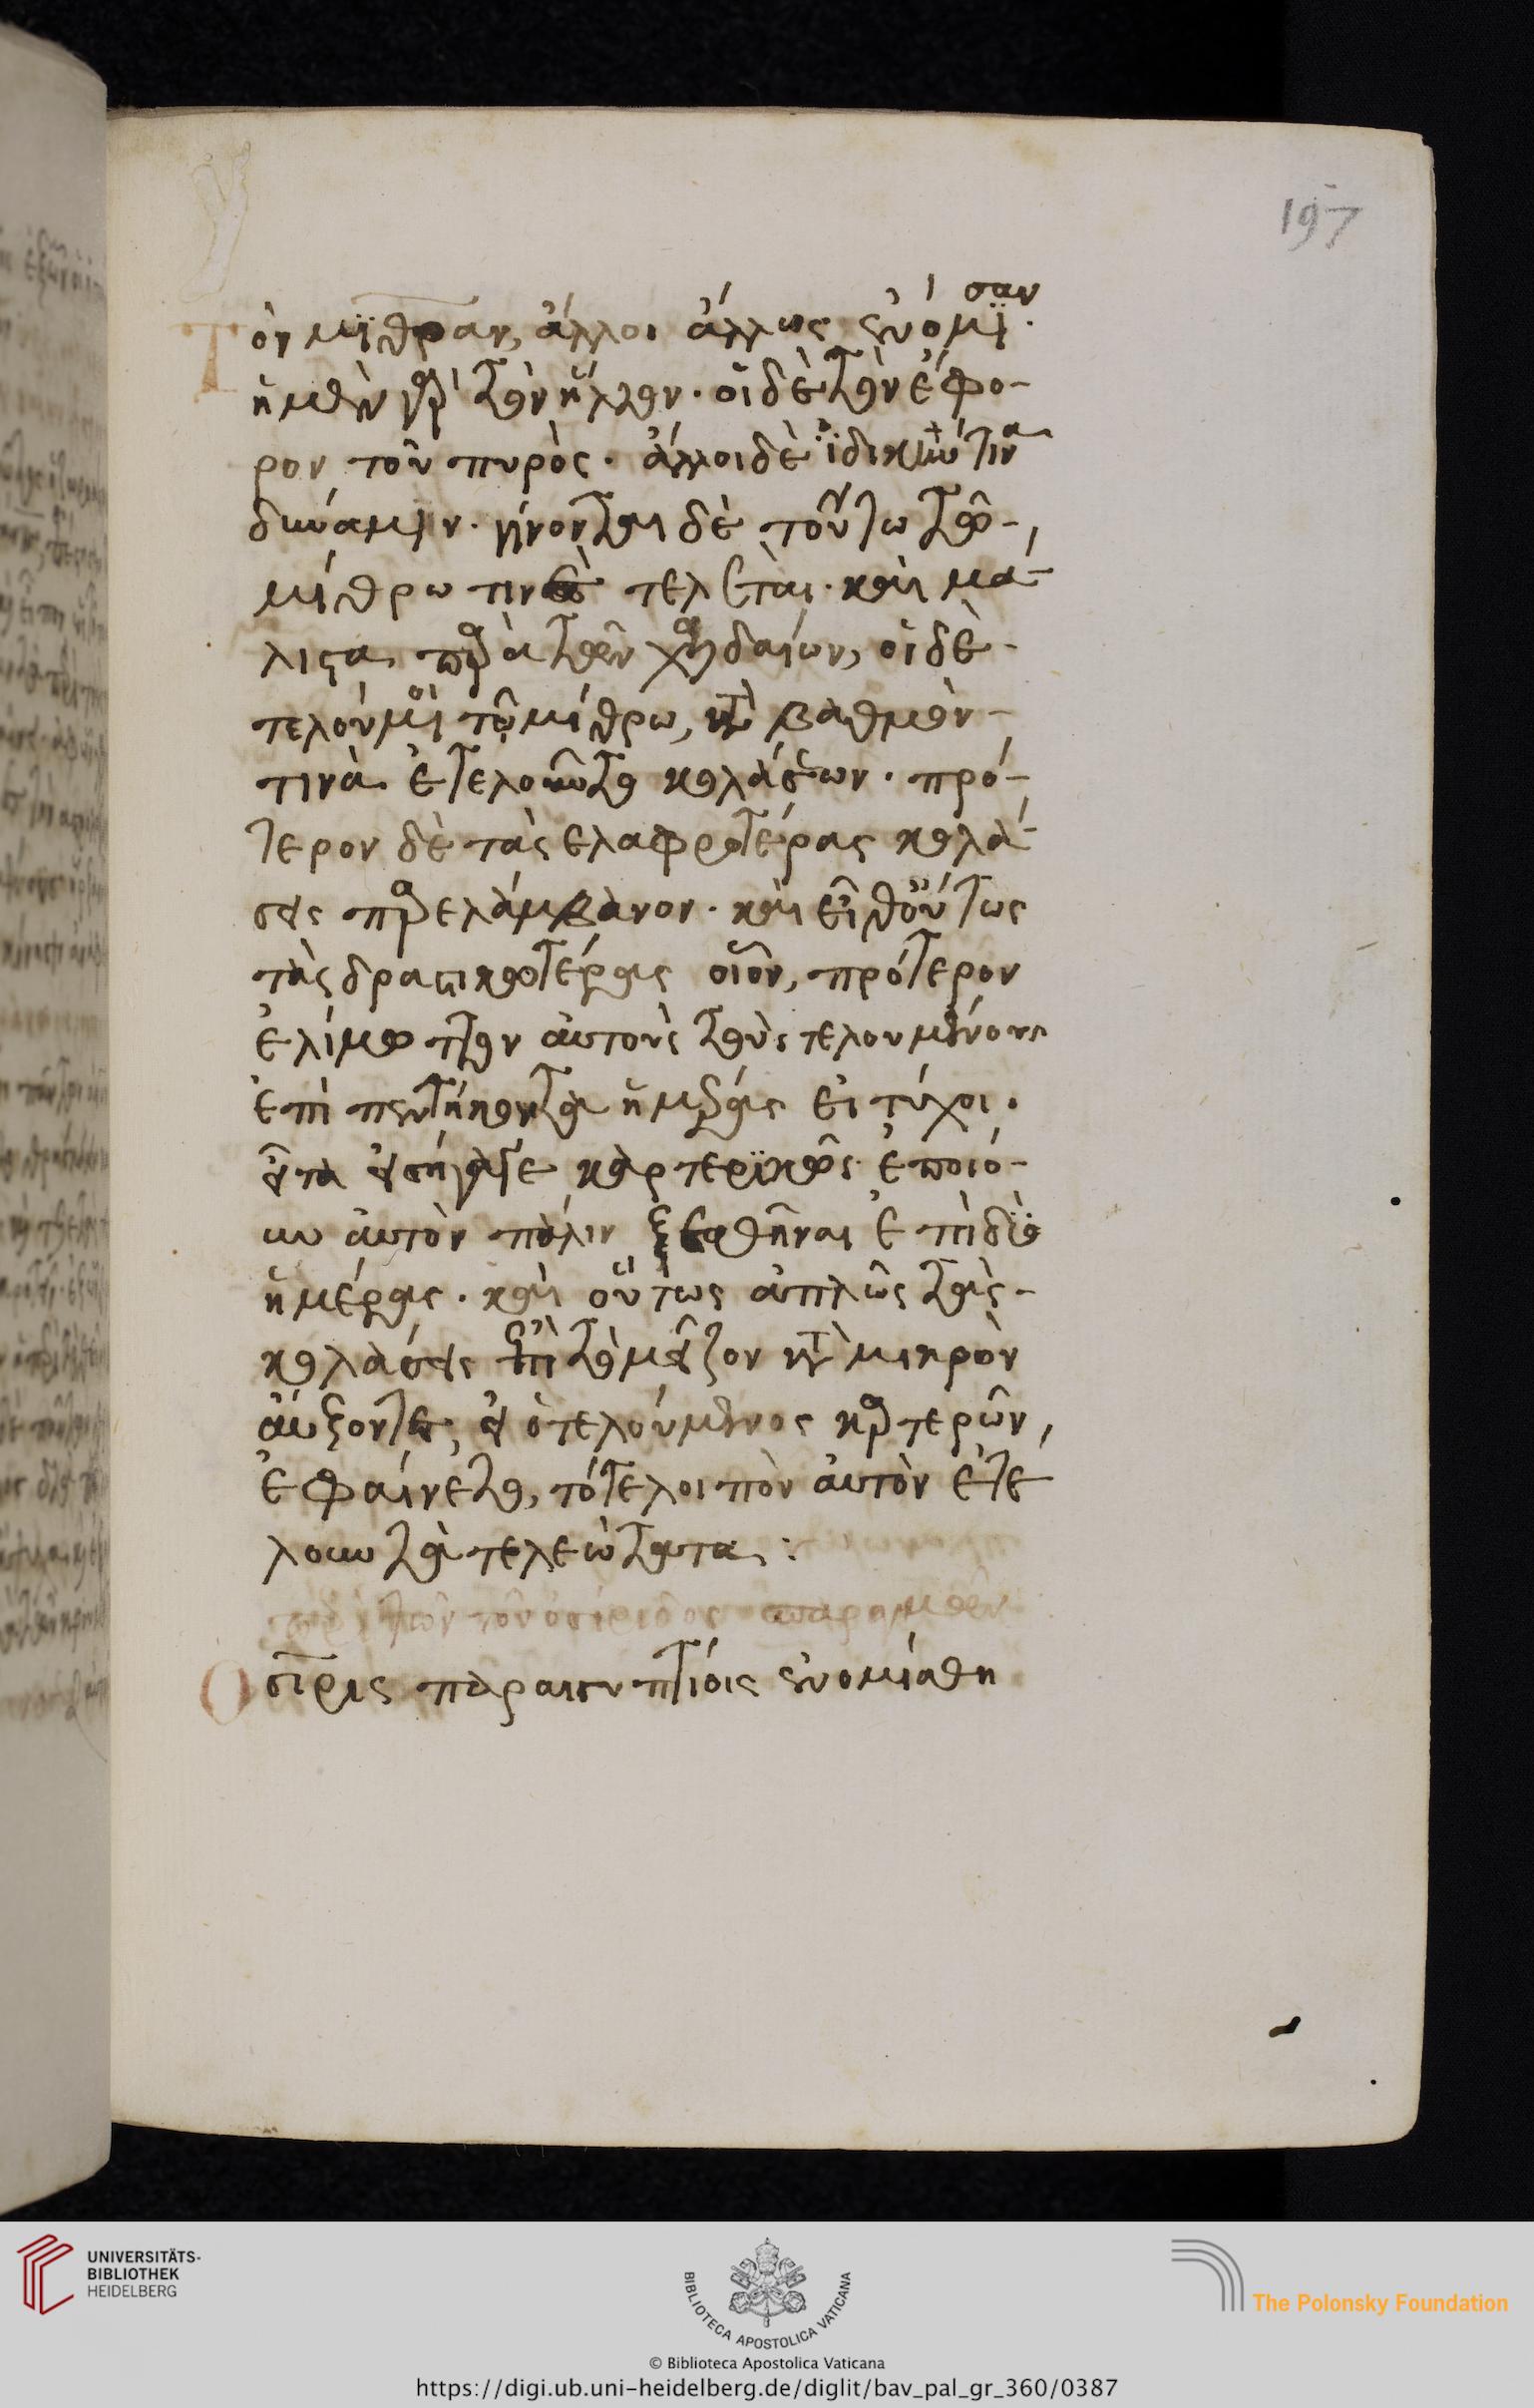 197
Τὸν μΐθραν, ἄλλοι ἄλλως ἐνόμϊσαν.
οἱ μὲν γὰρ τὸν ἥλιον. οἱ δὲ τὸν ἔφο-
ρον τοῦ πυρὸς. ἄλλοι δὲ ἰδικήν τινα
δύναμιν. γίνονται δὲ τούτω τῶ
μίθρω τινὲς τελεταὶ. καὶ μά-
λιστα παρὰ τῶν χαλδαίων, οἱ δὲ
τελούμενοι τῶ μίθρω, κατὰ βαθμὸν
τινὰ ἐτελοῦντο κολάσεων. πρό-
τερον δὲ τὰς ελαφροτέρας κολά-
σεις παρελάμβανον. καὶ εἶθ οὕτως
τὰς δραστικοτέρας οἷον, πρότερον
ἐλίμωττον αὐτοὺς τοὺς τελουμένους
ἐπὶ πεντήκοντα ἡμέρας εἰ τύχοι.
εἶτα εἰσήγαγε καρτερϊκῶς ἐποίο-
υν αὐτὸν πάλιν ξεσθῆναι ἐπὶ δύο
ἡμέρας. καὶ οὕτως ἁπλῶς τὰς
κολάσεις ἐπὶ τὸ μεῖζον κατὰ μικρὸν
αὔξοντες, εἰ ὁ τελούμενος καρτερῶν,
ἐφαίνετο, τότε λοιπὸν αὐτὸν ἐτέ
λουν τὰ τελεώτατα:
Οσϊρις παραιγυπτίοις ἐνομίσθη
UNIVERSITÄTS-
BIBLIOTHEK
HEIDELBERG
BIBLIOTECA APOSTOLICA VATICANA
The Polonsky Foundation
© Biblioteca Apostolica Vaticana
https://digi.ub.uni-heidelberg.de/diglit/bav_pal_gr_360/0387